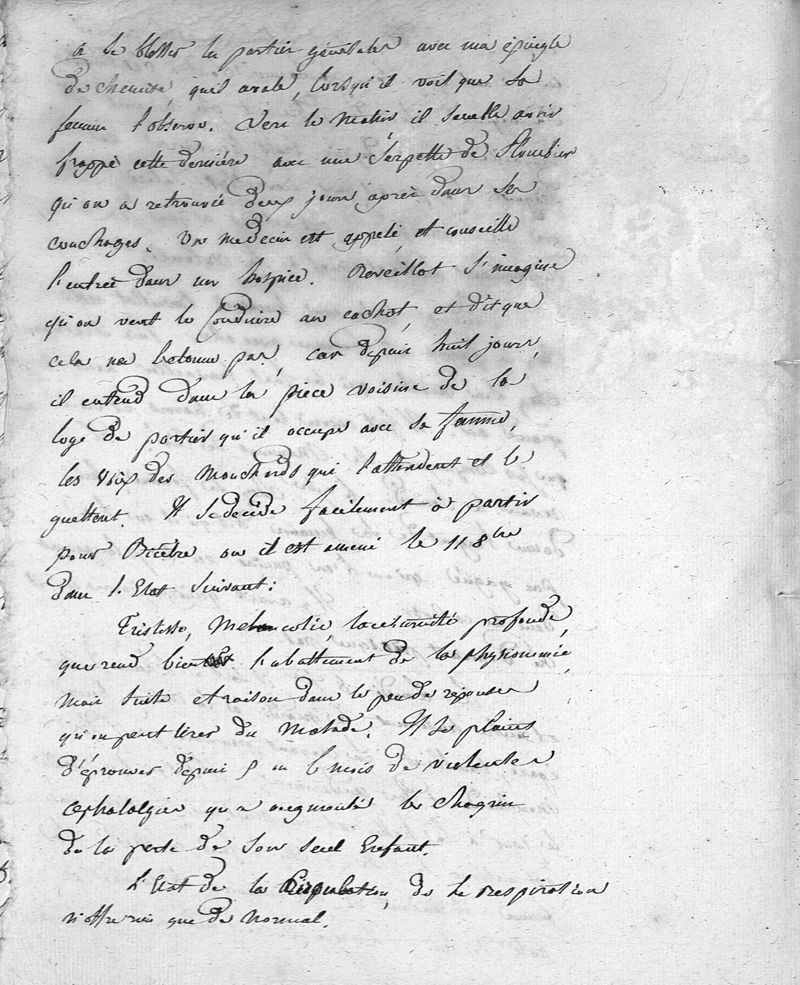 a se blesser les parties génitales avec une épingle
de chemise, qu'il avale, lorsqu'il voit que sa
femme l'observe. Vers le matin il semble avoir
frappé cette dernière avec une serpette de Plombier
qu'on a retrouvée deux jours après dans ses
couchages. Un medecin est appelé, et conseille
l'entrée dans un hospice. Reveillot s'imagine
qu'on veut le Conduire au cachot, et dit que
cela ne l'etonne pas, car depuis huit jours,
il entend dans la piece voisine de la
loge de portier qu'il occupe avec sa femme,
les voix des mouchards qui l'attendent et le
guettent. Il se decide facilement à partir
pour Bicêtre ou il est amené le 11 8bre
dans l'Etat Suivant:
Tristesse, Melancolie, taciturnité profonde,
que rend bien l'abattement de la physionomie,
mais suite et raison dans le peu de réponses
qu'on peut tirer du Malade. Il se plaint
d'éprouver depuis 5 ou 6 mois de violentes
cephalalgies qu'a augmenté le chagrin
de la perte de son seul Enfant.
L'Etat de la Circulation, de la respiration
n'offre rien que de normal.